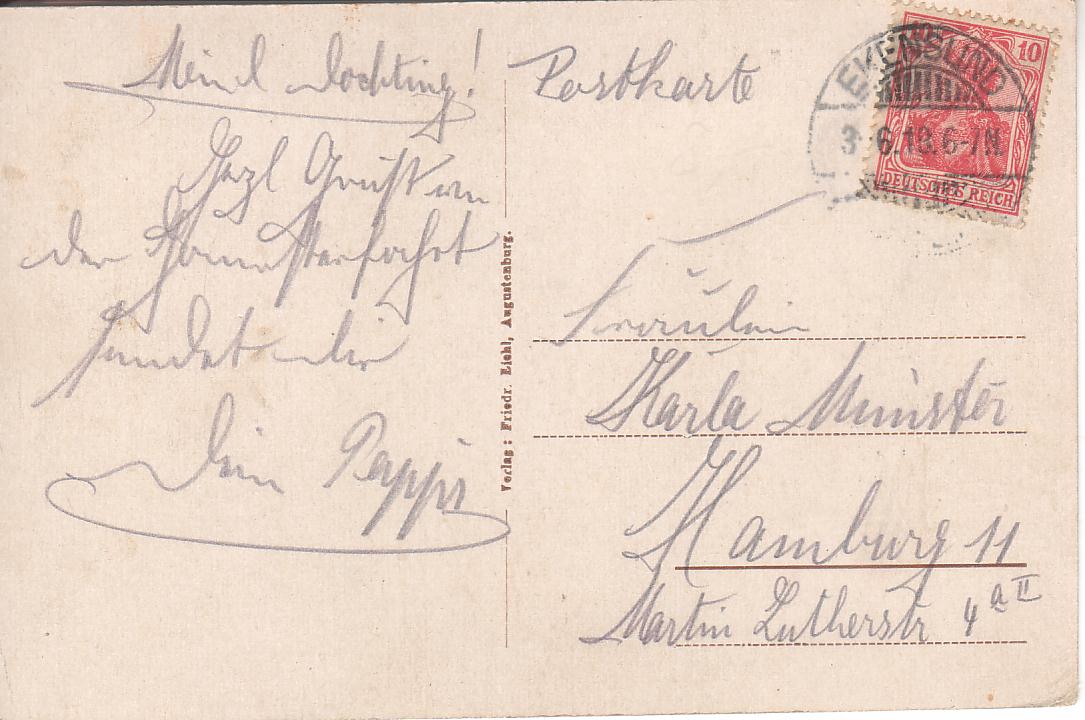 Postkarte
Herzl Gruß von
der
sendet dir
Dein Pappi
Verlag: Friedr. Liehl, Augustenburg.
EKENSUND
3 6.13.6-7N.
10
10
DEUTSCHES REICH
Fräulein
Karla Münster
Hamburg 11
Martin Lutherstr 4 a II